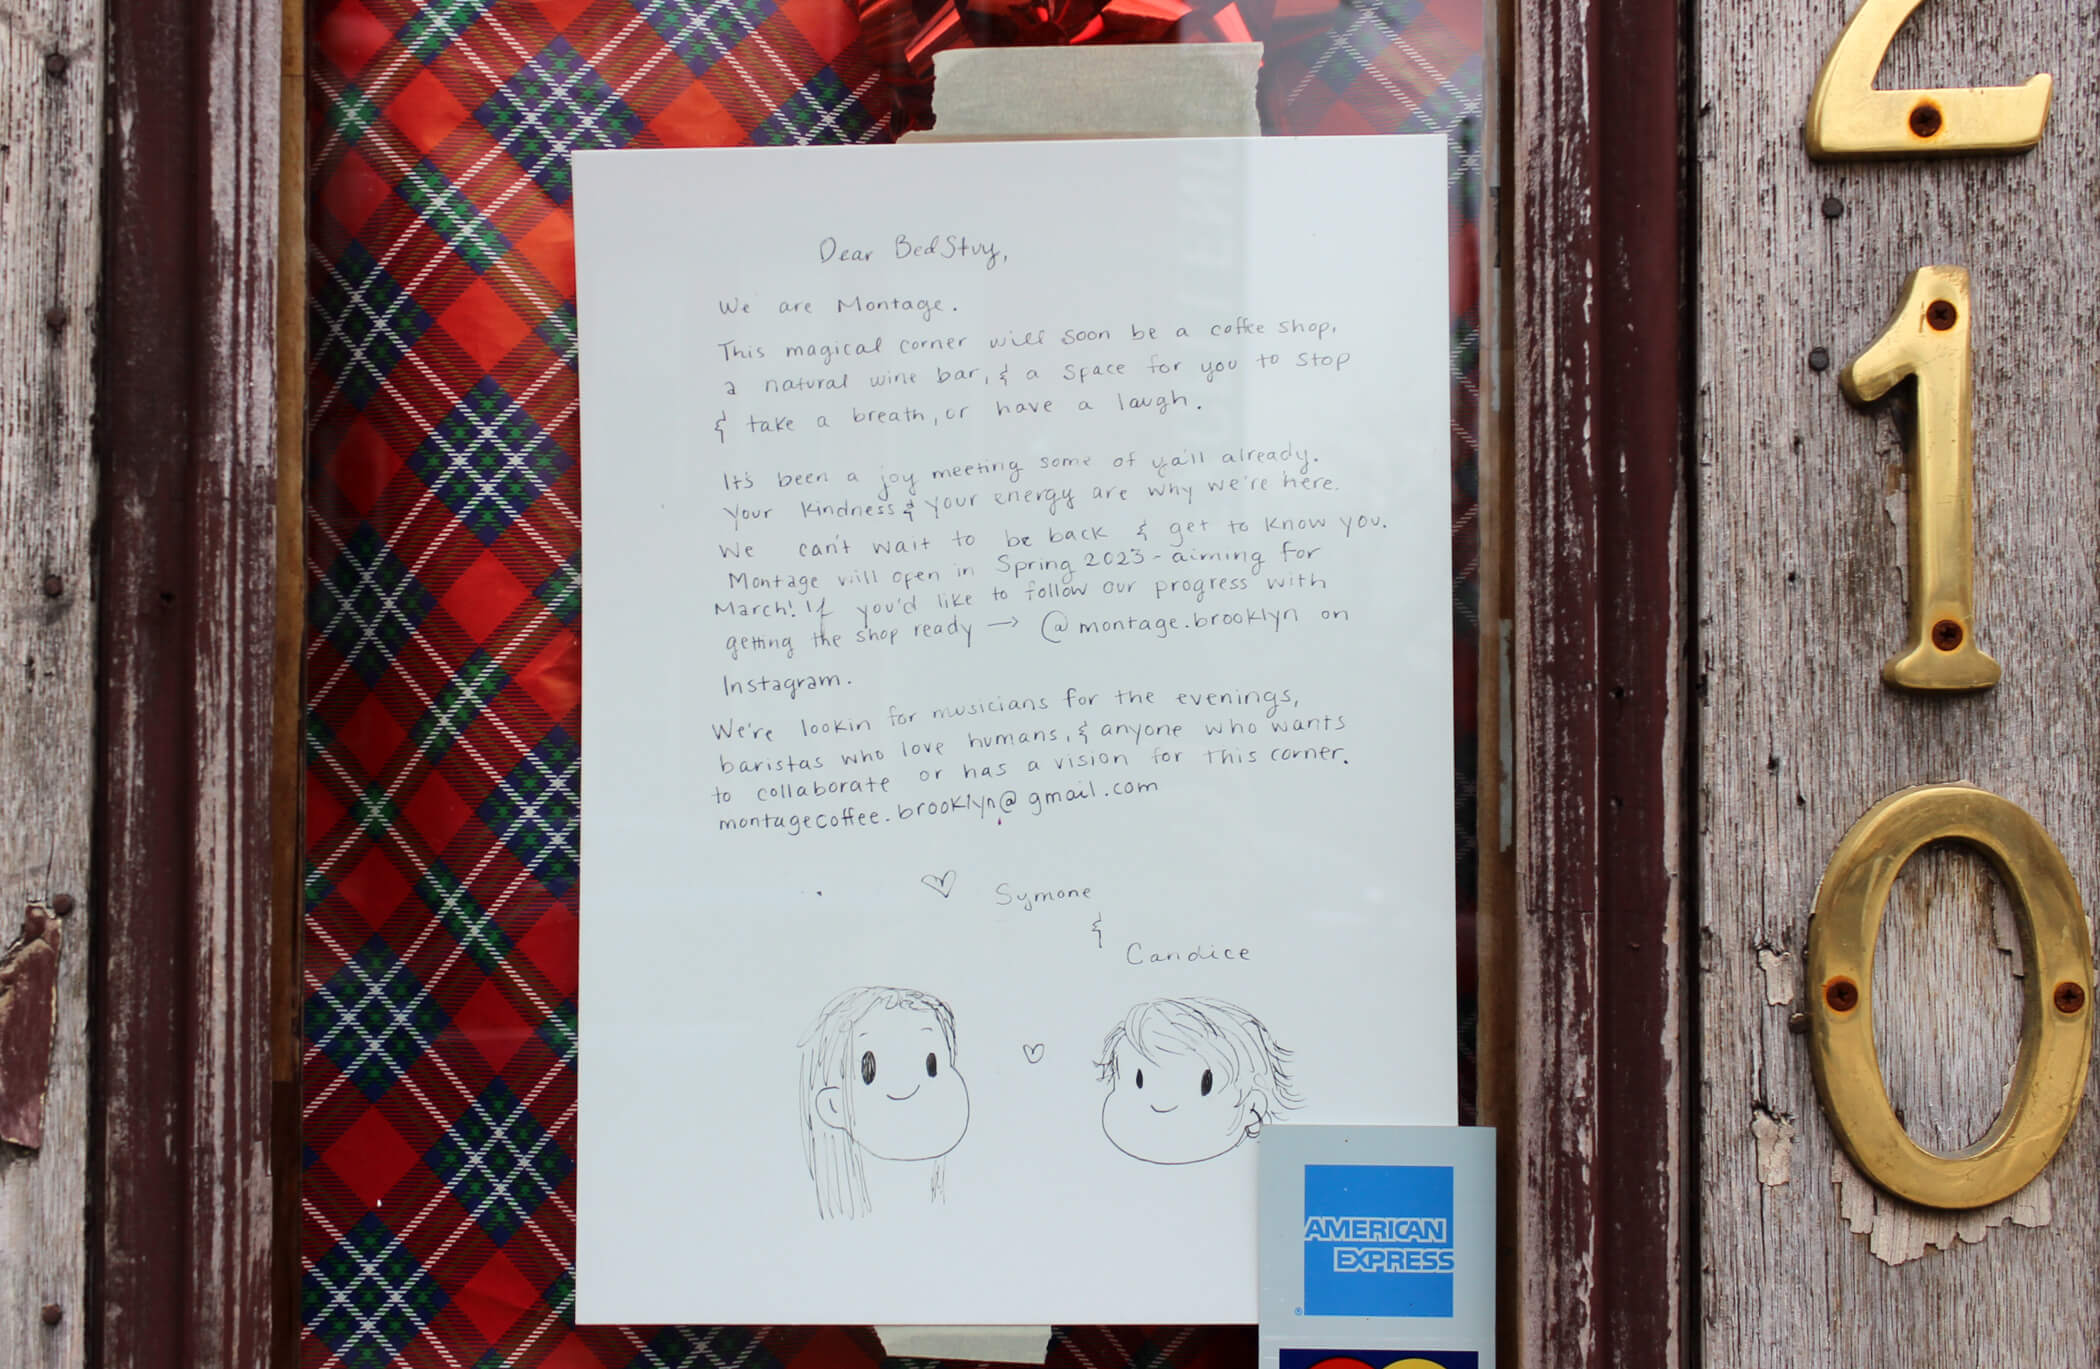 Dear BedStuy,
We are Montage.
This magical corner will soon be a coffee shop,
a natural wine bar, & a space for you to stop
& take a breath, or have a laugh.
It's been a joy meeting some of ya'll already.
Your kindness & your energy are why we're here.
We can't wait to be back & get to know you.
Montage will open in Spring 2023 - aiming for
March! If you'd like to follow our progress with
getting the shop ready → @montage.brooklyn on
Instagram.
We're lookin for musicians for the evenings,
baristas who love humans, & anyone who wants
to collaborate or has a vision for this corner.
montagecoffee.brooklyn@gmail.com
♡ Symone
&
Candice
AMERICAN
EXPRESS
®
2
1
0